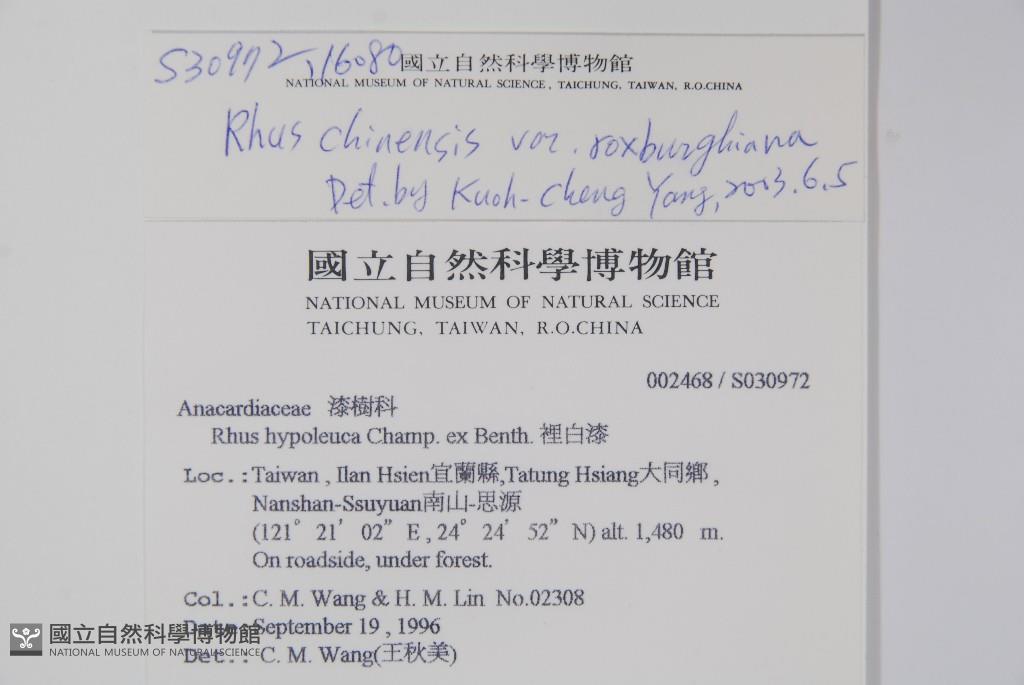 S30972, 16080
國立自然科學博物館
NATIONAL MUSEUM OF NATURAL SCIENCE, TAICHUNG, TAIWAN, R.O.CHINA
Rhus chinensis var. roxburghiana
Det. by Kuoh-cheng Yang, 2003.6.5
國立自然科學博物館
NATIONAL MUSEUM OF NATURAL SCIENCE
TAICHUNG, TAIWAN, R.O.CHINA
002468 / S030972
Anacardiaceae 漆樹科
Rhus hypoleuca Champ. ex Benth. 裡白漆
Loc.:Taiwan , Ilan Hsien宜蘭縣,Tatung Hsiang大同鄉 ,
Nanshan-Ssuyuan南山-思源
(121° 21′ 02” E , 24° 24′ 52” N) alt. 1,480 m.
On roadside, under forest.
Col.:C. M. Wang & H. M. Lin No.02308
Date: September 19 , 1996
Det.: C. M. Wang(王秋美)
國立自然科學博物館
NATIONAL MUSEUM OF NATURAL SCIENCE